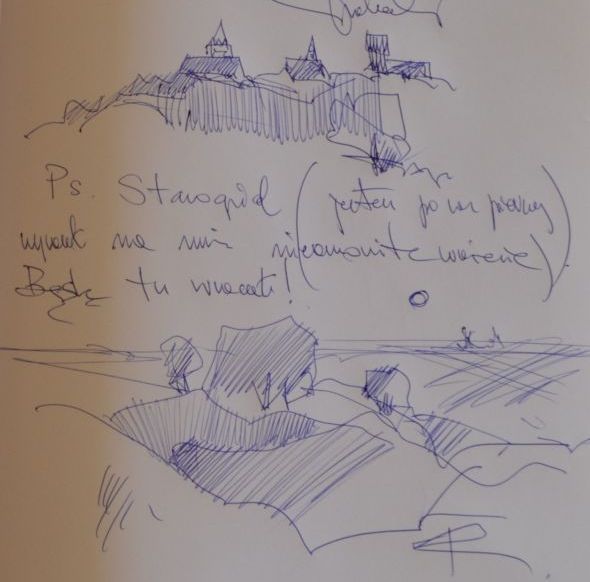 Ps. Starogród (jestem po raz pierwszy
wywarł na mnie niesamowite wrażenie)
Będę tu wracać!